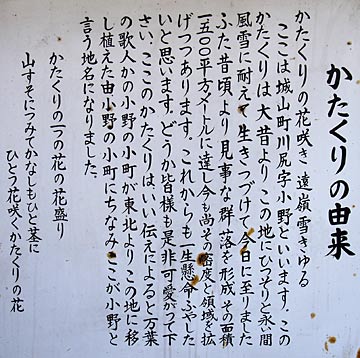 かたくりの由来
かたくりの花咲き 遠嶺雪きゆる
ここは城山町川尻字小野といいます。この
かたくりは大昔より、この地にひっそりと永い間
風雪に耐えて生きつづけて今日に至りました
ふた昔頃より見事な群落を形成、その面積
一五〇〇平方メートルに達し今も尚その密度と領域を拡
げつつあります。これからも一生懸命ふやした
いと思います。どうか皆様も是非可愛がって下
さい、ここのかたくりは、いい伝えによると万葉
の歌人かの小野の小町が東北より この地に移
し植えた由小野の小町にちなみ、ここが小野と
言う地名になりました。
かたくりの一つの花の花盛り
山すそにつみてかなしもいと茎に
ひとつ花咲くかたくりの花